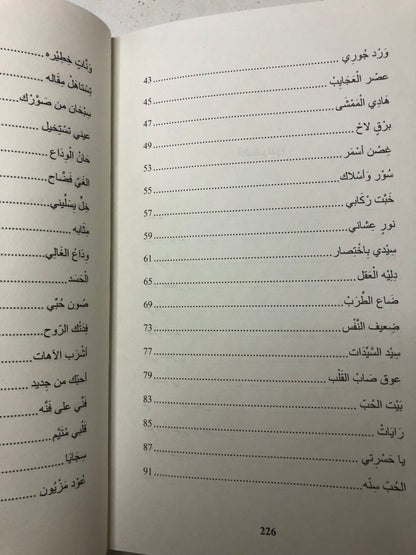 وَرْد جُوري 43
عصْر الْعَجَايِبْ 45
هَادِي الْمَمْشَى 47
برْقٍ لاحْ 49
غِصْن أسْمَر 53
سُوْر وَأسْلاك 55
خَبّت رْكَابي 57
نورٍ عِشَاني 59
سِيْدي بِاخْتِصار 61
دلِيْه الْعَقل 65
ضَاع الطَّرَبْ 69
ضِعيف النَّفْس 73
سِيْد السَّيّدَات 77
عوق صَابْ القَلْب 79
بَيْت الحُبّ 83
رَايَاتْ 85
يا حَسْرتي 87
الحُبّ سِنّه 91
226
وَنَّاتٍ خَطِيْره
تِسْتَاهَلْ مِقَاله
سِبْحَان من صَوَّرْك
عيني تسْتِحيل
حَانْ الْودَاع
الغَيّ فَضَّاح
خِلٍّ يسَلّيني
مِثَابه
ودَاعْ الغَالِي
الْحَسَد
صُون حُبِّي
فِدَتْك الرّوح
أشْرَب الآهَات
أحِبّك من جديد
فَنّي على فَنّه
قَلْبي مْتَيَّم
سِجَايَا
عُوْد مَزْيُون